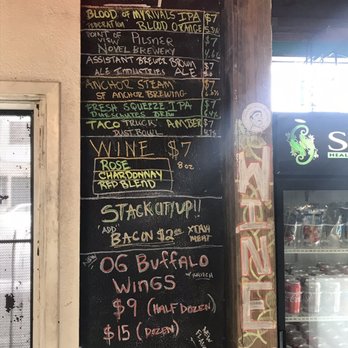 BLOOD OF MY RIVALS IPA $7
FEDERATION BLOOD ORANGE
POINT OF VIEW PILSNER $7
NOVEL BREWERY
ASSISTANT BREWER BROWN $7
ALE INDUSTRIES ALE
ANCHOR STEAM $7
SF ANCHOR BREWING
FRESH SQUEEZE IPA $7
DESCHUTES BREW
TACO TRUCK AMBER $7
DUST BOWL
WINE $7
8oz
ROSE
CHARDONNAY
RED BLEND
STACK CITY UP!!
"ADD"
BACON $2.00 XTRA
MEAT
OG BUFFALO
WINGS
$9 (HALF DOZEN)
$15 (DOZEN)
WINE
S
HEAL